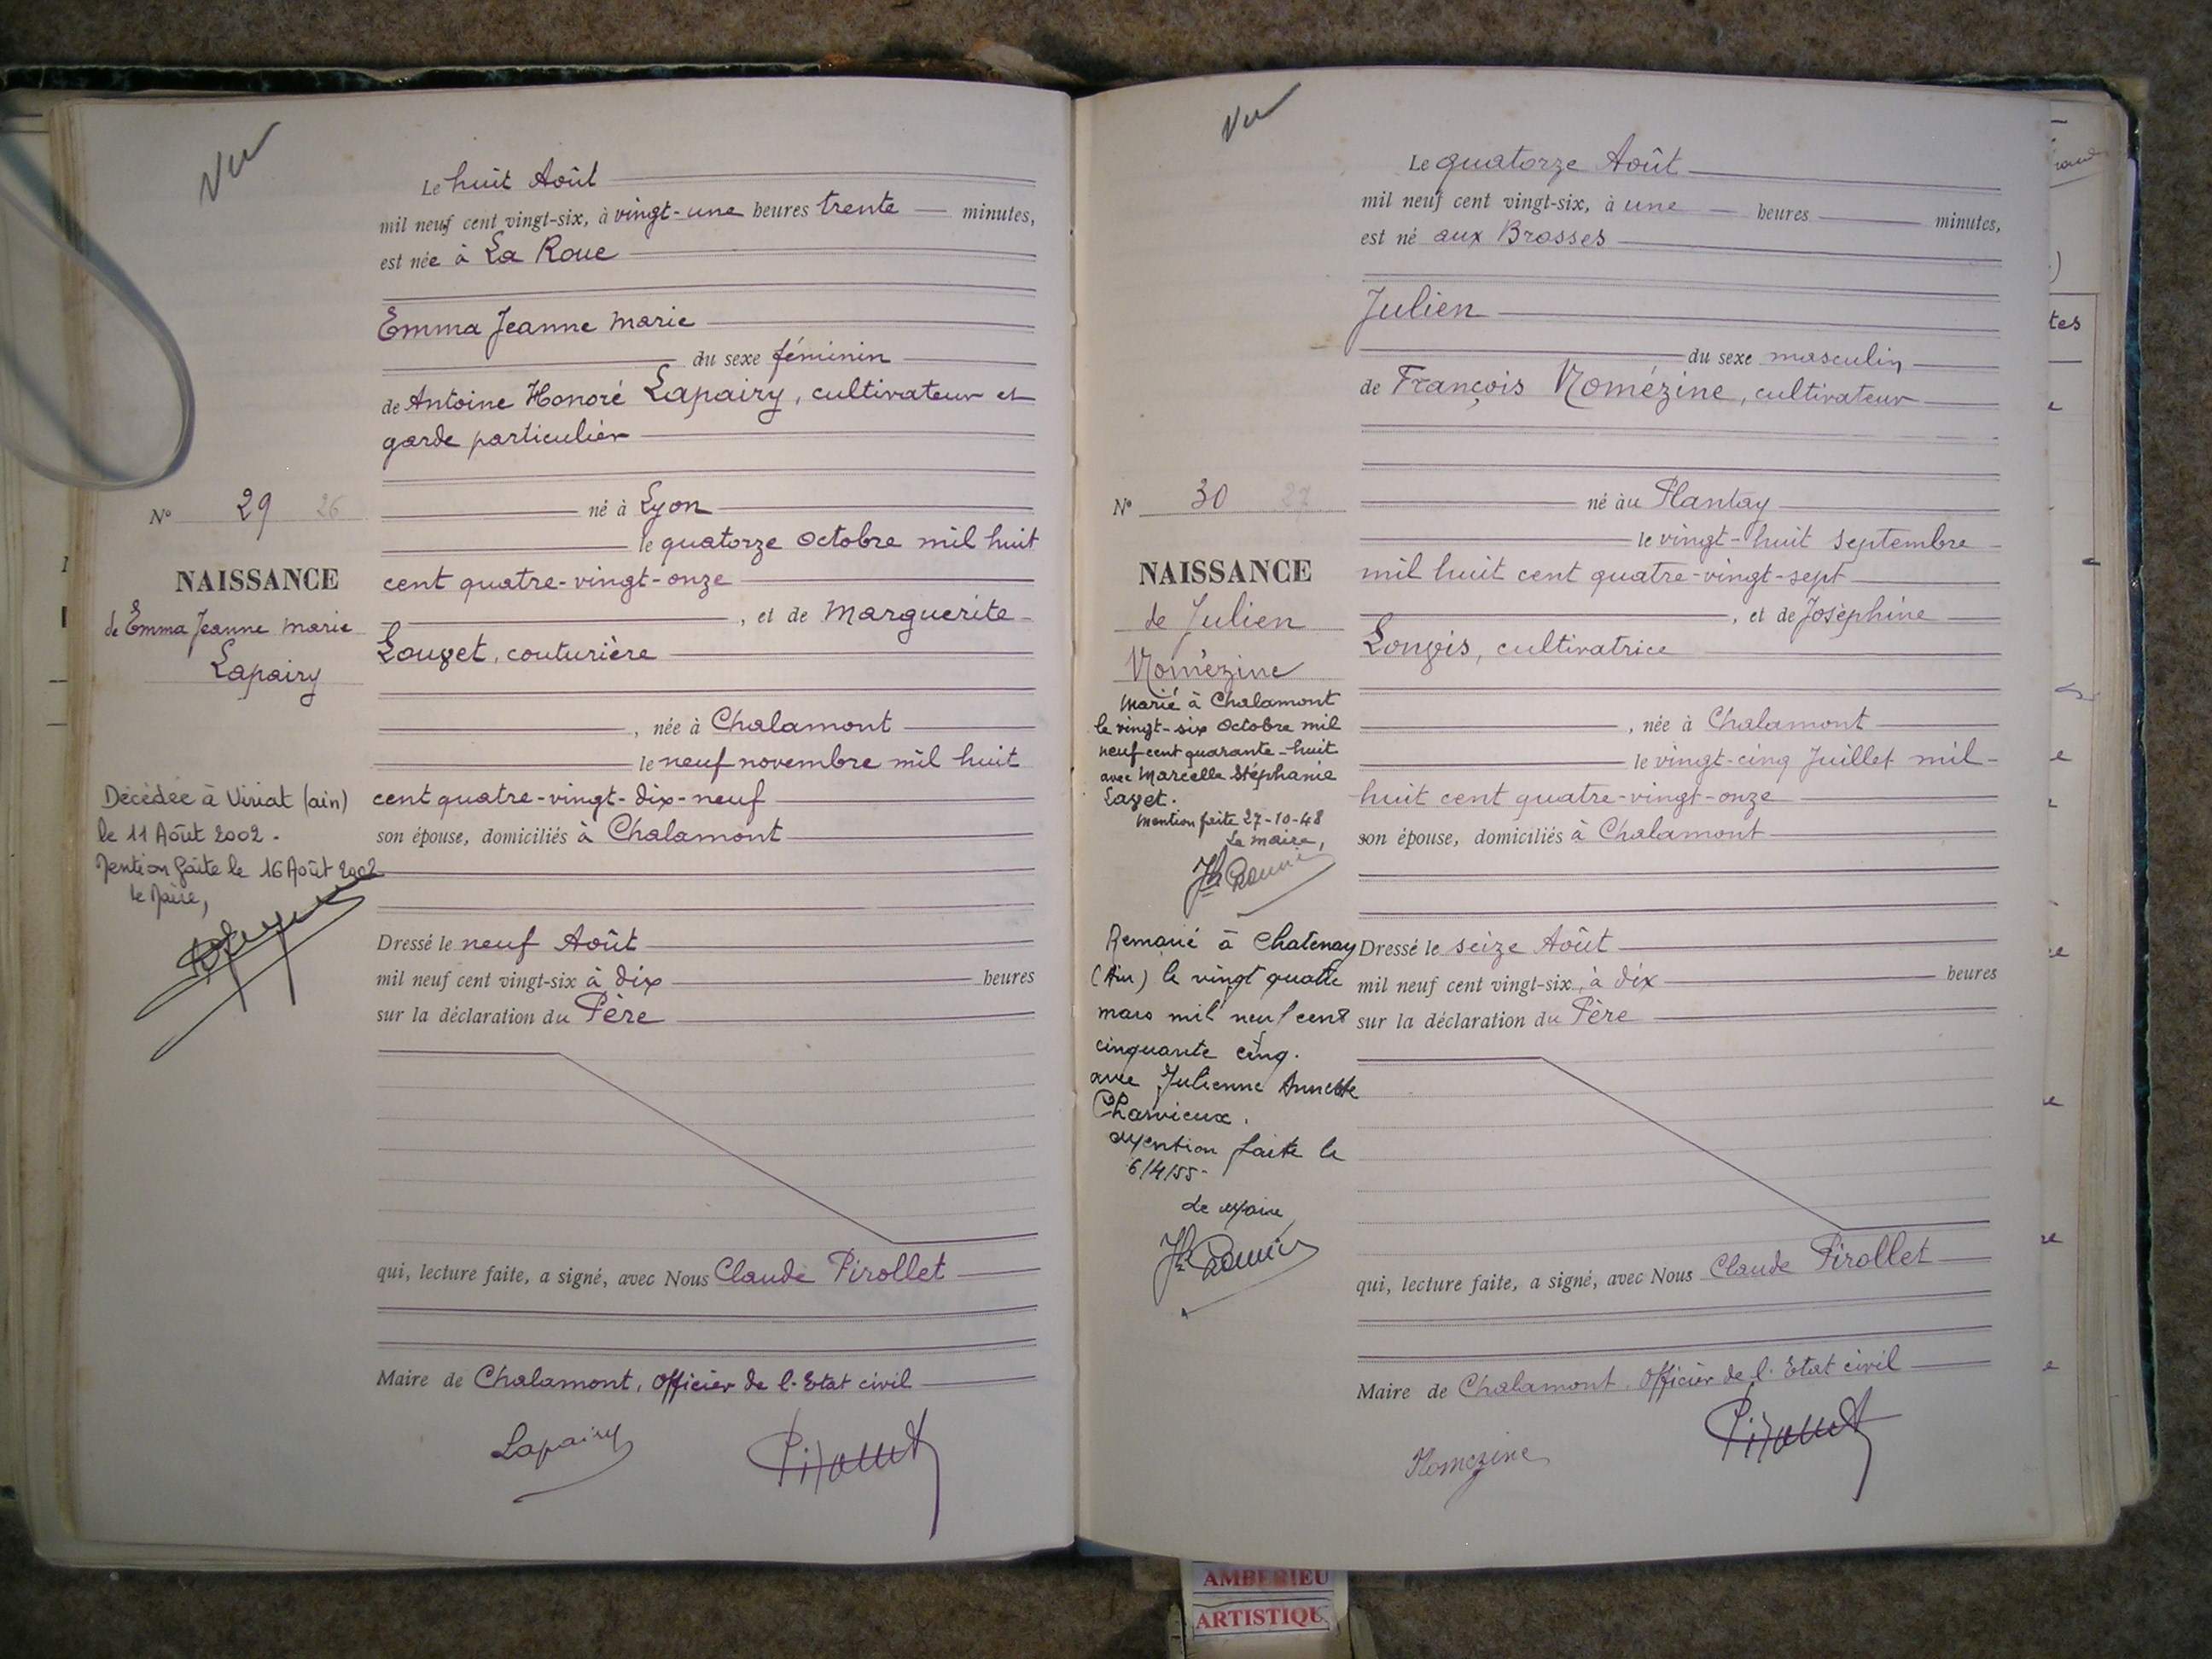 Vu
Le huit Août
mil neuf cent vingt-six, à vingt-une heures trente minutes,
est née à La Roue
Emma Jeanne Marie
du sexe féminin
de Antoine Honoré Lapairy, cultivateur et
garde particulier
né à Lyon
le quatorze Octobre mil huit
cent quatre-vingt-onze
, et de Marguerite
Louget, couturière
, née à Chalamont
le neuf novembre mil huit
cent quatre-vingt-dix-neuf
son épouse, domiciliés à Chalamont
Dressé le neuf Août
mil neuf cent vingt-six à dix heures
sur la déclaration du Père
qui, lecture faite, a signé, avec Nous Claude Pirollet
Maire de Chalamont, Officier de l'Etat civil
Lapairy
Pirollet
N° 29 26
NAISSANCE
de Emma Jeanne Marie
Lapairy
Décédée à Viriat (ain)
le 11 Août 2002.
Mention faite le 16 Août 2002
le Maire,
Vu
Le quatorze Août
mil neuf cent vingt-six, à une heures minutes,
est né aux Brosses
Julien
du sexe masculin
de François Nomézine, cultivateur
né au Plantay
le vingt-huit septembre
mil huit cent quatre-vingt-sept
, et de Joséphine
Longis, cultivatrice
, née à Chalamont
le vingt-cinq Juillet mil
huit cent quatre-vingt-onze
son épouse, domiciliés à Chalamont
Dressé le seize Août
mil neuf cent vingt-six, à dix heures
sur la déclaration du Père
qui, lecture faite, a signé, avec Nous Claude Pirollet
Maire de Chalamont, Officier de l'Etat civil
Nomezine
Pirollet
N° 30 27
NAISSANCE
de Julien
Nomézine
Marié à Chalamont
le vingt-six Octobre mil
neuf cent quarante-huit
avec Marcelle Stéphanie
Layet.
Mention faite 27-10-48
Le maire,
Remarié à Chatenay
(Ain) le vingt quatre
mars mil neuf cent
cinquante cinq.
avec Julienne Annette
Charvieux.
Mention faite le
6/4/55-
Le Maire
tes
AMBERIEU
ARTISTIQU